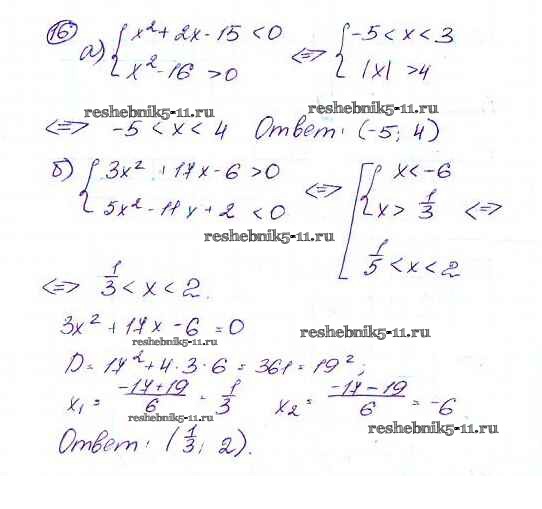 16. а) { x² + 2x - 15 < 0 ⇔ { -5 < x < 3
x² - 16 > 0 |x| > 4
reshebnik5-11.ru reshebnik5-11.ru
⇔ -5 < x < 4 Ответ: (-5; 4)
б) { 3x² + 17x - 6 > 0 ⇔ [ { x < -6
5x² - 11x + 2 < 0 x > 1/3 ⇔
reshebnik5-11.ru
1/5 < x < 2
⇔ 1/3 < x < 2.
3x² + 17x - 6 = 0 reshebnik5-11.ru
reshebnik5-11.ru
D = 17² + 4 · 3 · 6 = 361 = 19²;
x₁ = (-17+19)/6 = 1/3 x₂ = (-17-19)/6 = -6
reshebnik5-11.ru
Ответ: (1/3; 2).